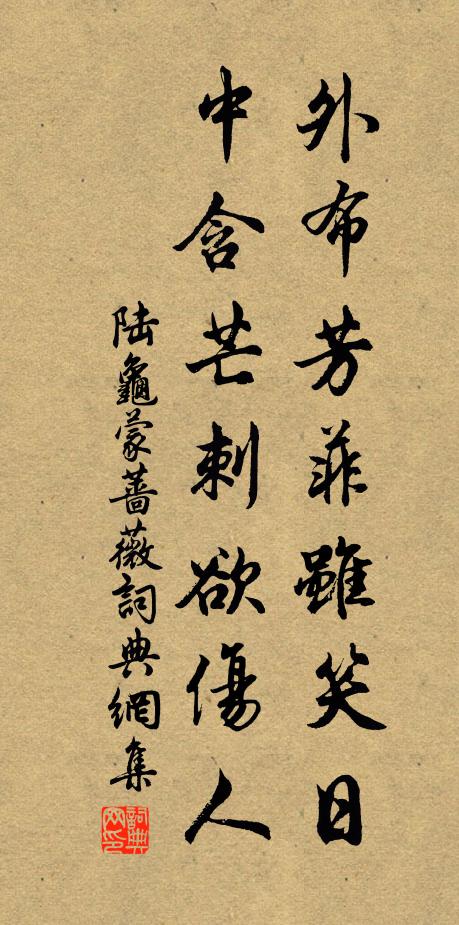 外布芳菲雖笑日
中含芒刺欲傷人
陸龜蒙薔薇詞典網集
詞典網印